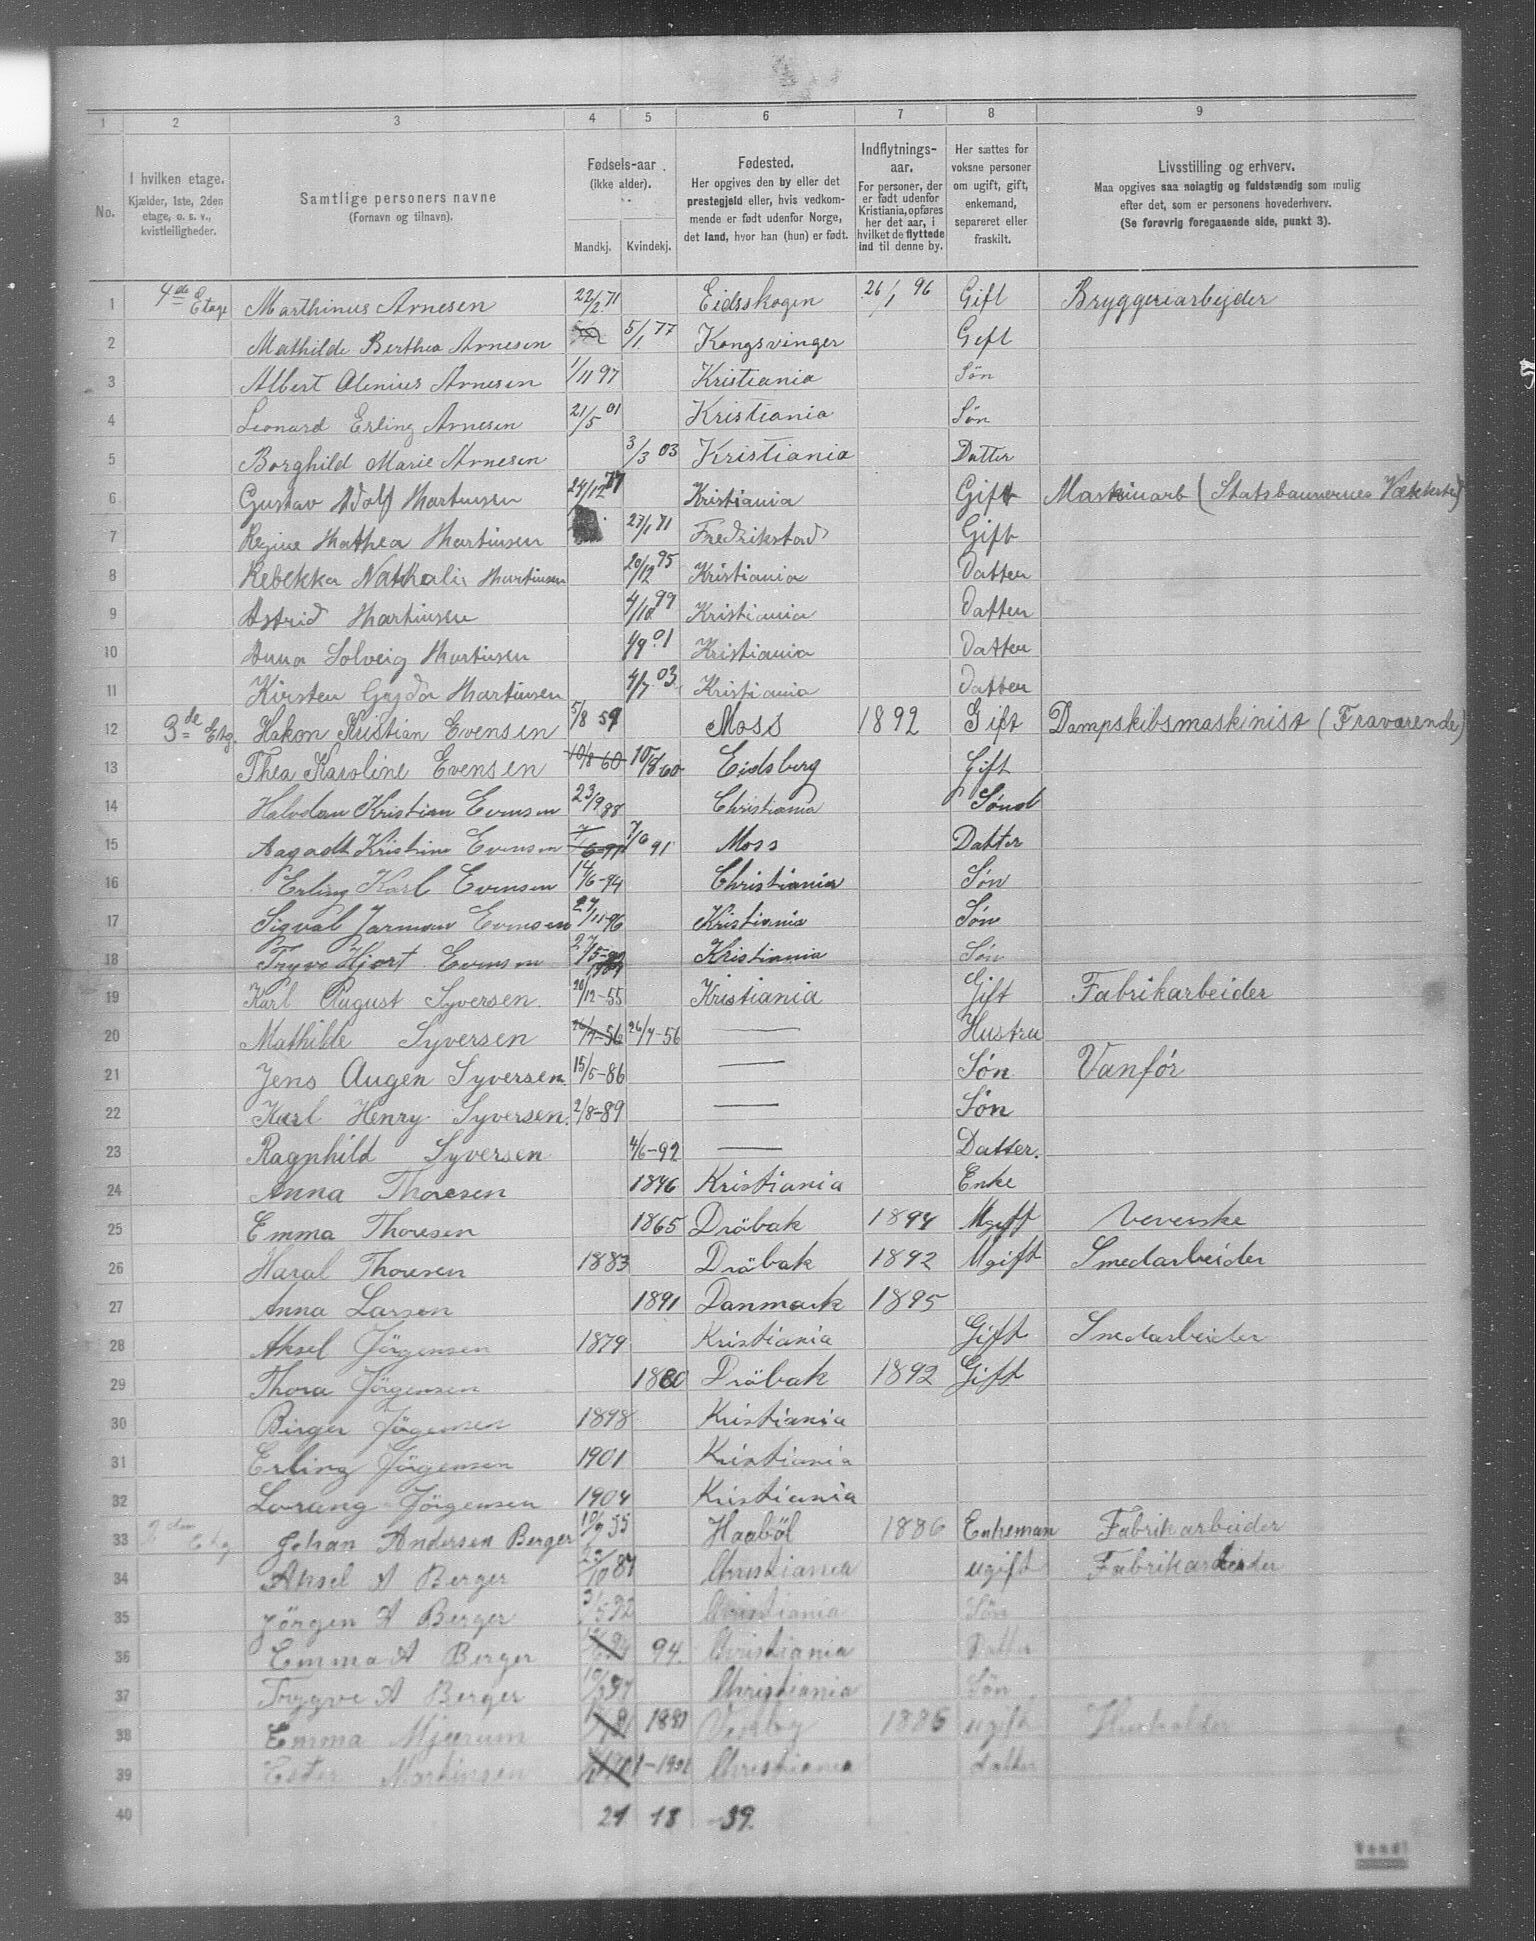 1 2 3 4 5 6 7 8 9
No.
I hvilken etage.
Kjælder, 1ste, 2den
etage, o. s. v.,
kvistleiligheder.
Samtlige personers navne
(Fornavn og tilnavn).
Fødsels-aar
(ikke alder).
Mandkj. Kvindekj.
Fødested.
Her opgives den by eller det
prestegjeld eller, hvis vedkom-
mende er født udenfor Norge,
det land, hvor han (hun) er født.
Indflytnings-
aar.
For personer, der
er født udenfor
Kristiania, opføres
her det aar, i
hvilket de flyttede
ind til denne by.
Her sættes for
voksne personer
om ugift, gift,
enkemand,
separeret eller
fraskilt.
Livsstilling og erhverv.
Maa opgives saa nøiagtig og fuldstændig som mulig
efter det, som er personens hovederhverv.
(Se forøvrig foregaaende side, punkt 3).
1 4de Etage Marthinus Arnesen 22/2 71 Eidsskogen 26/1 96 Gift Bryggeriarbejder
2 Mathilde Berthea Arnesen 5/1 77 Kongsvinger Gift
3 Albert Alenius Arnesen 1/11 97 Kristiania Søn
4 Leonard Erling Arnesen 21/5 01 Kristiania Søn
5 Borghild Marie Arnesen 3/3 03 Kristiania Datter
6 Gustav Adolf Martinsen 24/12 71 Kristiania Gift Maskinarb (Statsbanernes Værksted)
7 Regine Mathea Martinsen 27/1 71 Fredrikstad Gift
8 Rebekka Nathalie Martinsen 20/12 95 Kristiania Datter
9 Astrid Martinsen 4/10 99 Kristiania Datter
10 Anna Solveig Martinsen 4/9 01 Kristiania Datter
11 Kirsten Gyda Martinsen 4/7 03 Kristiania Datter
12 3de Etg. Hakon Kristian Evensen 5/8 59 Moss 1892 Gift Dampskibsmaskinist (Fraværende)
13 Thea Karoline Evensen 10/8 60 10/8 60 Eidsberg Gift
14 Halvdan Kristian Evensen 23/9 88 Christiania Søn
15 Aagodt Kristine Evensen 7/6-91 7/6 91 Moss Datter
16 Erling Karl Evensen 14/6-94 Christiania Søn
17 Sigval Jarman Evensen 27/11-96 Kristiania Søn
18 Trygve Hjort Evensen Kristiania Søn
19 Karl August Syversen 20/12-55 Kristiania Gift Fabrikarbeider
20 Mathilde Syversen 26/4-56 26/4-56 — Hustru
21 Jens Augen Syversen. 15/5-86 — Søn Vanför
22 Karl Henry Syversen. 2/8-89 — Søn
23 Ragnhild Syversen 4/6-92 — Datter.
24 Anna Thoresen 1846 Kristiania Enke
25 Emma Thoresen 1865 Dröbak 1894 Ugift Veverske
26 Haral Thoresen 1883 Dröbak 1892 Ugift Smedarbeider
27 Anna Larsen 1891 Danmark 1895
28 Aksel Jörgensen 1879 Kristiania Gift Smedarbeider
29 Thora Jörgensen 1880 Dröbak 1892 Gift
30 Birger Jörgensen 1898 Kristiania
31 Erling Jörgensen 1901 Kristiania
32 Lorang Jörgensen 1904 Kristiania
33 2den Etg Johan Andersen Berger 10/9 55 Haaböl 1886 Enkeman Fabrikarbeider
34 Aksel A Berger 87 Christiania ugift Fabrikarbeider
35 Jörgen A Berger 3/5 92 Christiania Søn
36 Emma A Berger 94. Christiania Datter
37 Trygve A Berger 97 Christiania Søn
38 Emma Mjærum 1881 1886 ugift Husholder
39 Ester Martinsen 1-1901 Christiania datter
40 21 18 -39.
Vend!